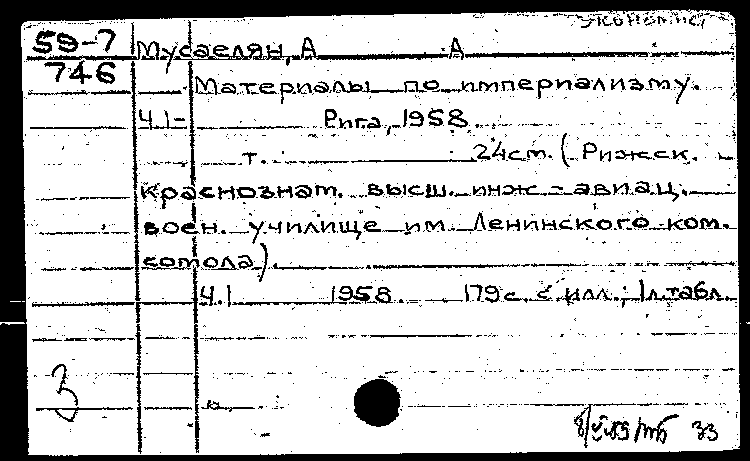 59-7
Мусаелян, А А
746
Материалы по империализму.
Ч.1- Рига, 1958.
т. 24см. (Рижск.
краснознам. высш. инж-авиац.
воен. училище им. Ленинского ком.
сомола).
Ч.1 1958. 179с. с илл.; 1л.табл.
3
33